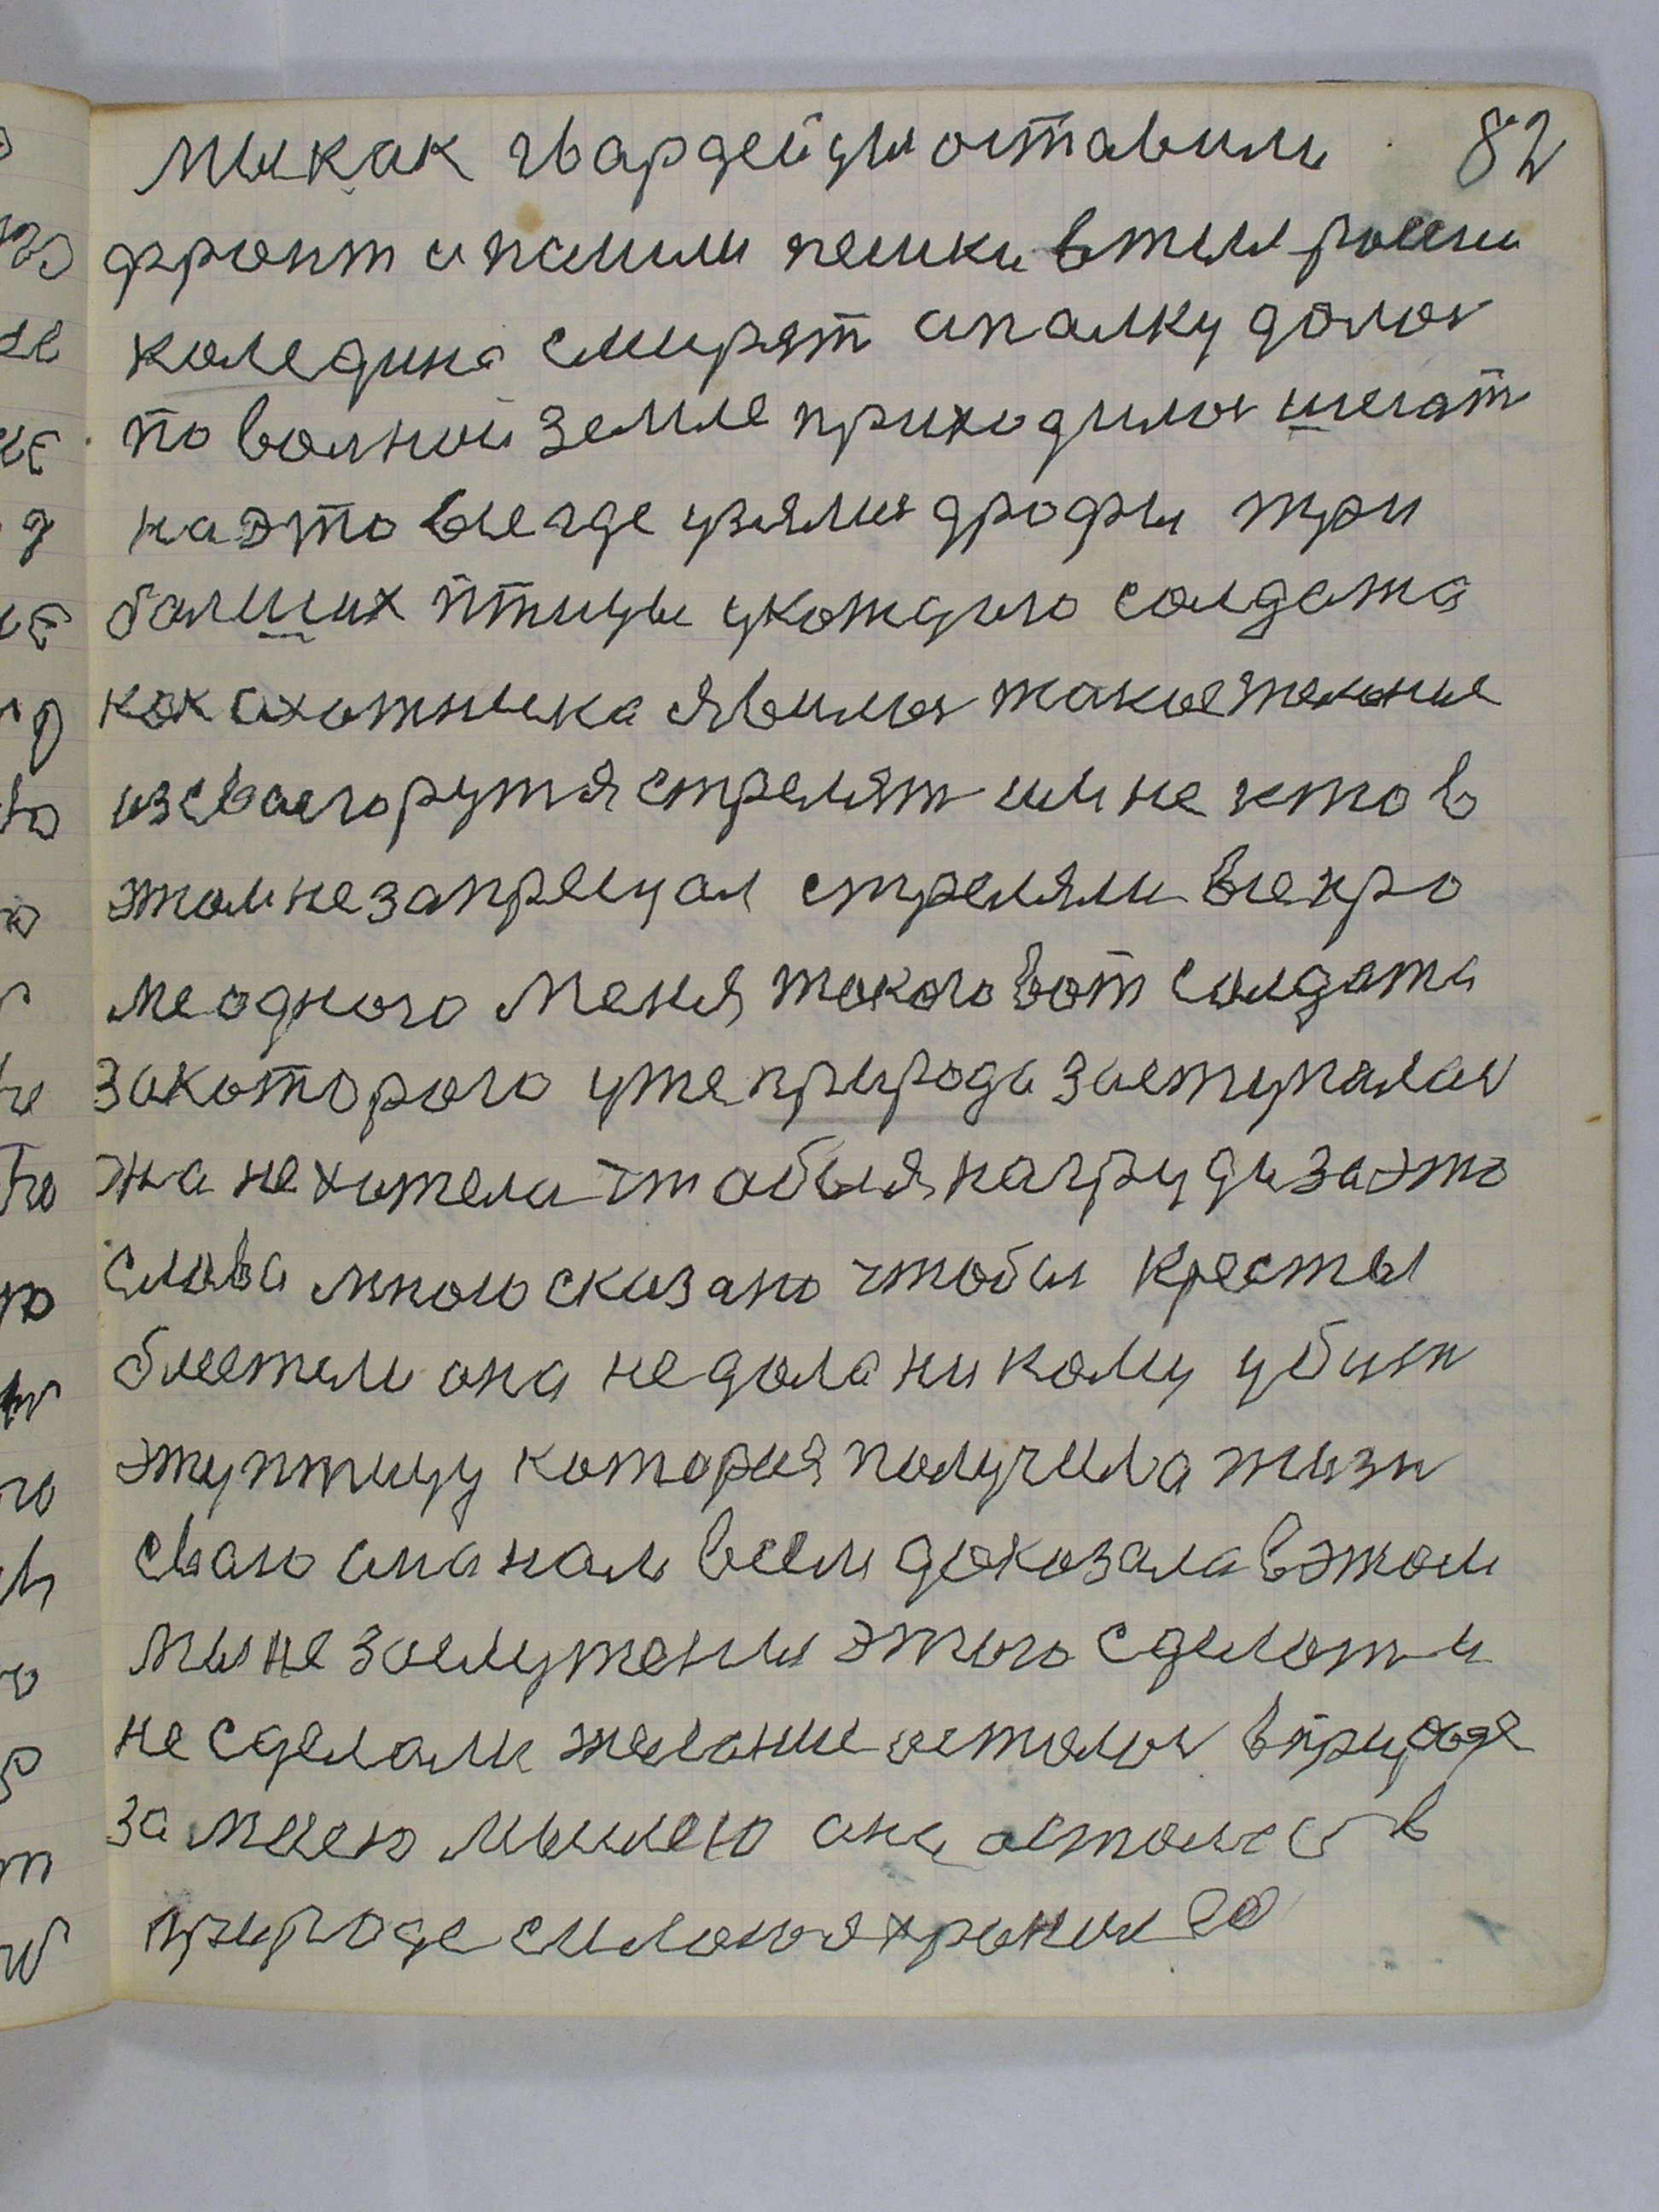 мы как гвардейцы оставили 82
фронт и пашли пешки в тыл расеи
каледина смирят и палку далось
по волной земле приходилось шегат
на это все где узялись дрофы три
балших птицы у кождыго солдата
как и охотника явилось такое желание
из сваего ружя стрелят им не хто в
этом не запрещал стреляли все кро
ме одного меня такого вот солдата
за которого уже природа заступалась
она не хотела чтобы я на груди за это
слова мною сказано чтобы кресты
блестели она недала никому убить
эту птицу которая получила жизн
сваю она нам всем доказала в этом
мы не заслужены этого сделат и
не сделали желание осталось в природе
за маею мыслею она осталас в
природе силоная храним ее